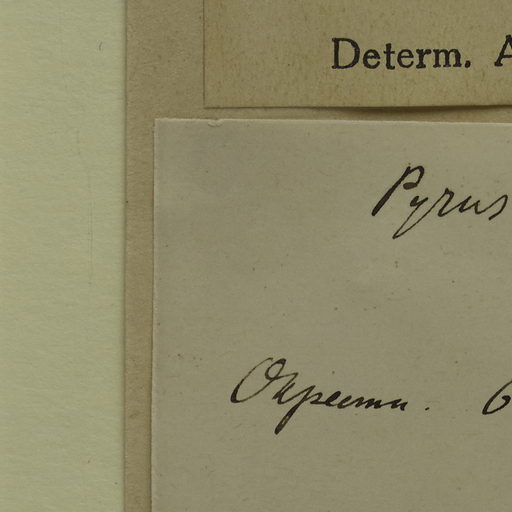 Determ. A
Pyrus
Окрестн.